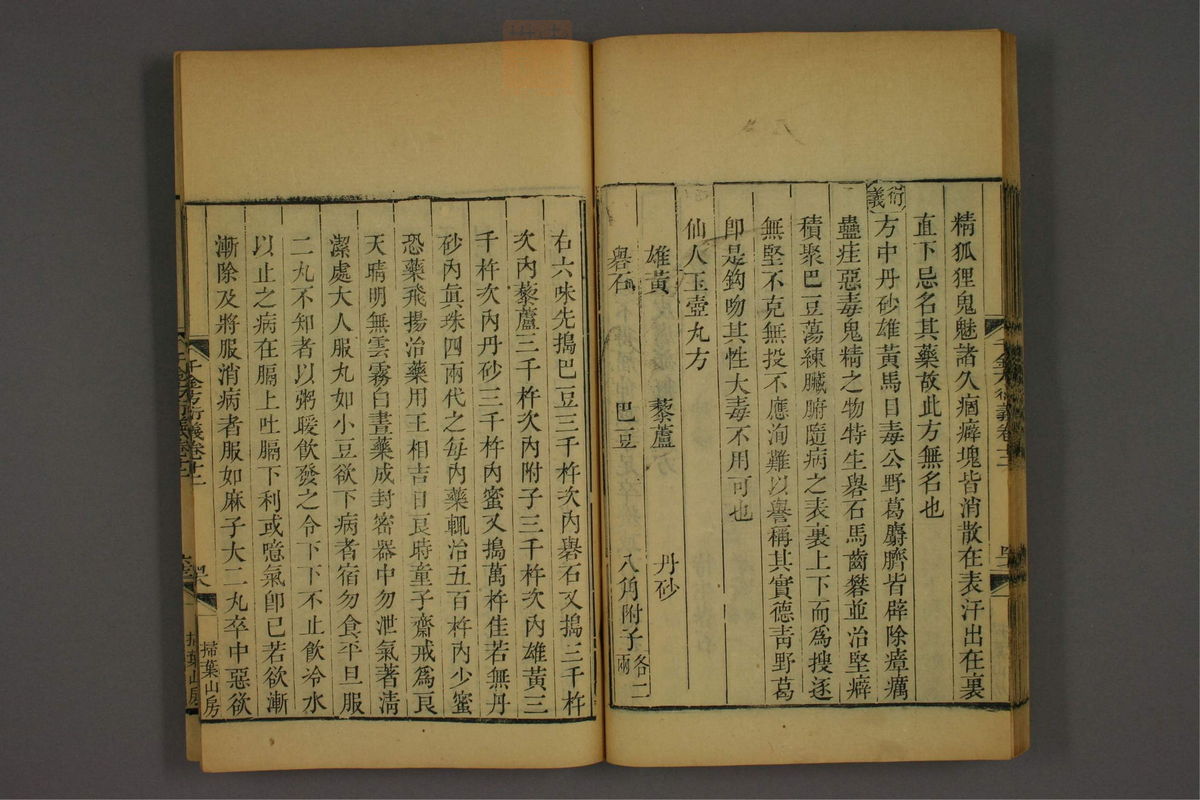 精狐狸鬼魅諸久痼癖塊皆消散在表汗出在裏
直下忌名其藥故此方無名也
衍義
方中丹砂雄黃馬目毒公野葛麝臍皆辟除瘴癘
蠱疰惡毒鬼精之物特生礜石馬齒礬並治堅癖
積聚巴豆蕩練臟腑隨病之表裏上下而為搜逐
無堅不克無投不應洵難以譽稱其實德靑野葛
卽是鈎吻其性大毒不用可也
仙人玉壺丸方
雄黃　藜蘆　丹砂
礜石　巴豆　八角附子各二兩
右六味先搗巴豆三千杵次內礜石又搗三千杵
次內藜蘆三千杵次內附子三千杵次內雄黃三
千杵次內丹砂三千杵內蜜又搗萬杵佳若無丹
砂內眞珠四兩代之每內藥輒治五百杵內少蜜
恐藥飛揚治藥用王相吉日良時童子齋戒為良
天晴明無雲霧白晝藥成封密器中勿泄氣著淸
潔處大人服丸如小豆欲下病者宿勿食平旦服
二丸不知者以粥暖飲發之令下下不止飲冷水
以止之病在膈上吐膈下利或噫氣卽已若欲漸
漸除及將服消病者服如麻子大二丸卒中惡欲
千金方衍義卷十二
掃葉山房